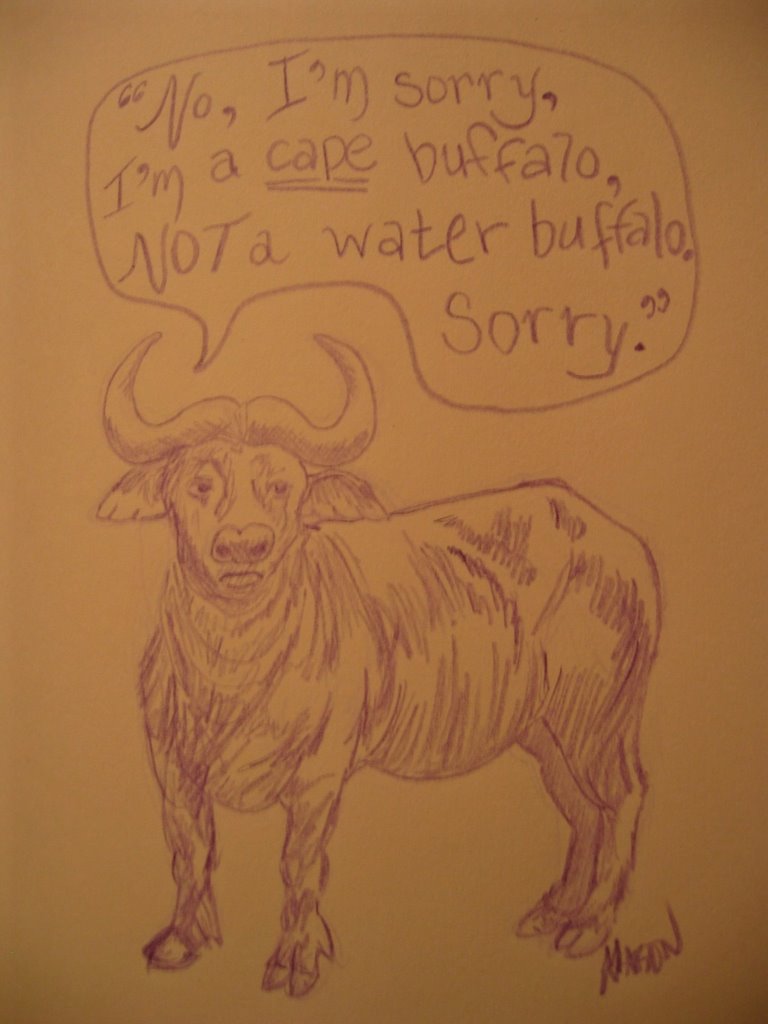 “No, I'm sorry,
I'm a cape buffalo,
NOT a water buffalo.
Sorry.”